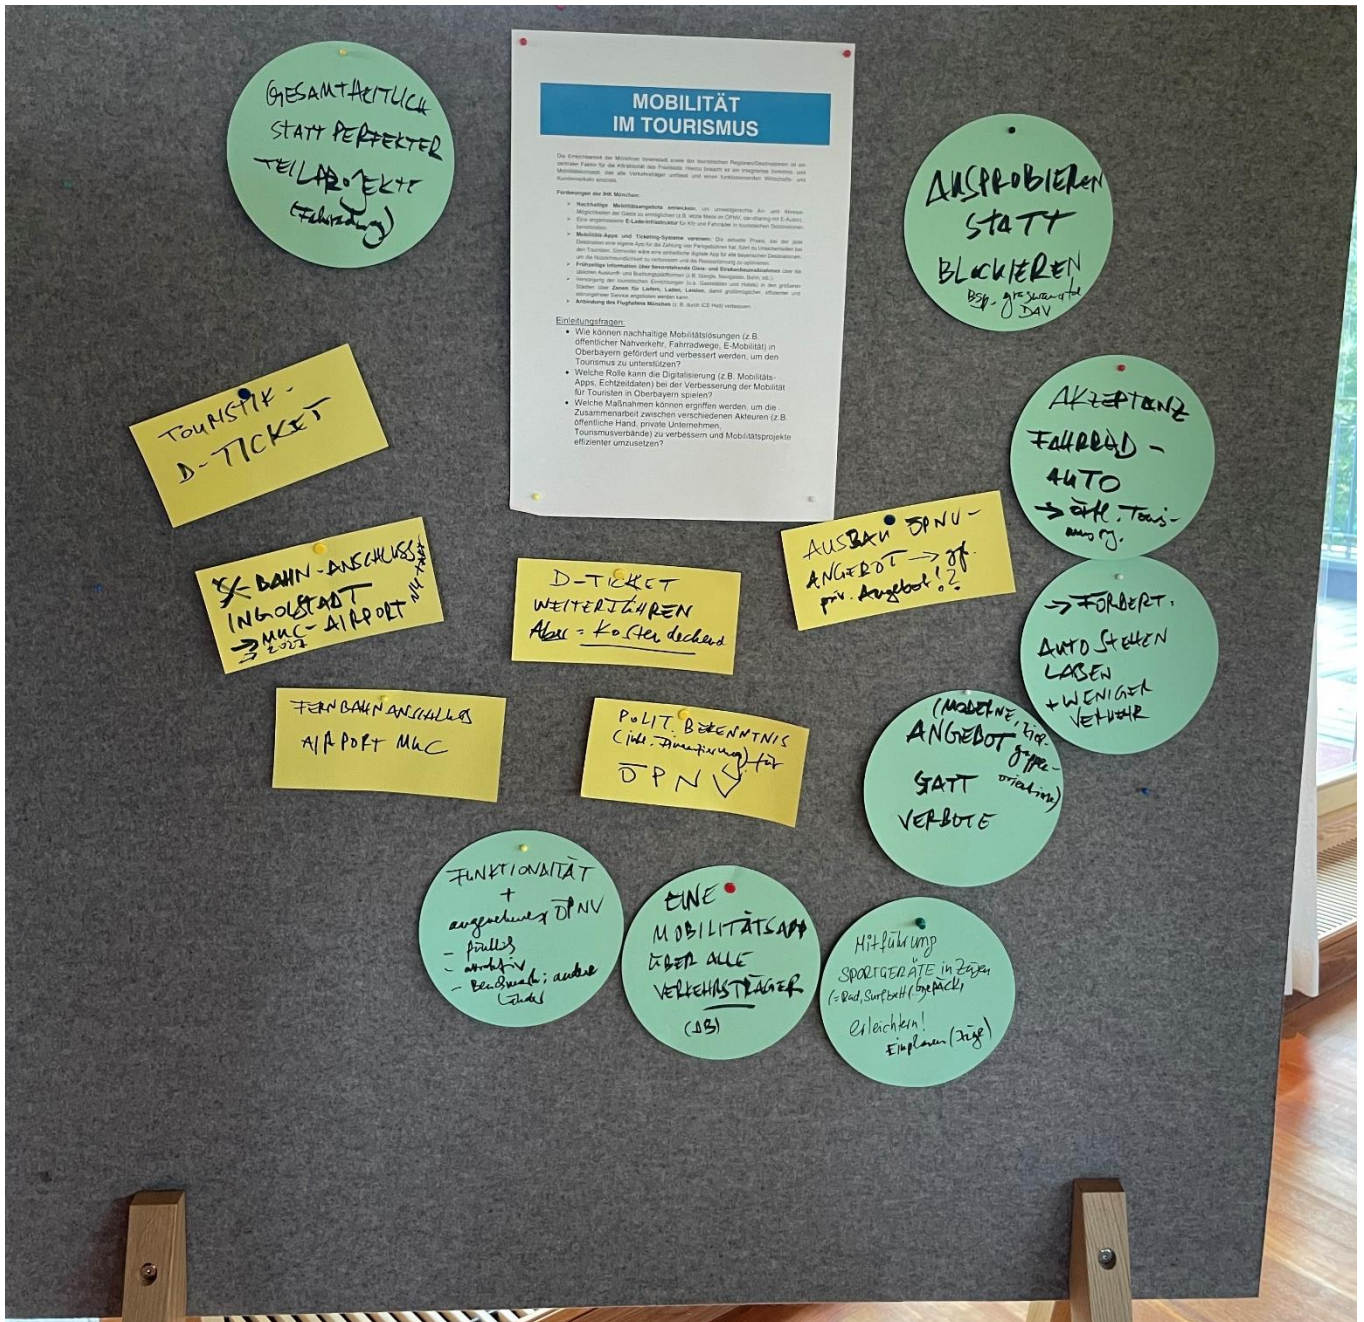 GESAMTHEITLICH
STATT PERFEKTER
TEILPROJEKTE
(Fahrradweg)
MOBILITÄT
IM TOURISMUS
Die Erreichbarkeit der Münchner Innenstadt sowie der touristischen Regionen/Destinationen ist ein
zentraler Faktor für die Attraktivität des Freistaats. Hierzu braucht es ein integriertes Verkehrs- und
Mobilitätskonzept, das alle Verkehrsträger umfasst und einen funktionierenden Wirtschafts- und
Kundenverkehr
Forderungen der IHK München:
➢ Nachhaltige Mobilitätsangebote entwickeln, um umweltgerechte An- und Abreise-
Möglichkeiten der Gäste zu ermöglichen (z.B. letzte Meile im ÖPNV, car-sharing mit E-Autos).
➢ Eine angemessene E-Lade-Infrastruktur für Kfz und Fahrräder in touristischen Destinationen
bereitstellen.
➢ Mobilitäts-Apps und Ticketing-Systeme vereinen: Die aktuelle Praxis, bei der jede
Destination eine eigene App für die Zahlung von Parkgebühren hat, führt zu Unsicherheiten bei
den Touristen. Sinnvoller wäre eine einheitliche digitale App für alle bayerischen Destinationen,
um die Nutzerfreundlichkeit zu verbessern und die Reiseerfahrung zu optimieren.
➢ Frühzeitige Information über bevorstehende Gleis- und Straßenbaumaßnahmen über die
üblichen Auskunft- und Buchungsplattformen (z.B. Google, Navigation, Bahn, etc.).
➢ Versorgung der touristischen Einrichtungen (u.a. Gaststätten und Hotels) in den größeren
Städten über Zonen für Liefern, Laden, Leisten, damit größtmöglicher, effizienter und
störungsfreier Service angeboten werden kann.
➢ Anbindung des Flughafens München (z.B. durch ICE-Halt) verbessern
Einleitungsfragen:
• Wie können nachhaltige Mobilitätslösungen (z.B.
öffentlicher Nahverkehr, Fahrradwege, E-Mobilität) in
Oberbayern gefördert und verbessert werden, um den
Tourismus zu unterstützen?
• Welche Rolle kann die Digitalisierung (z.B. Mobilitäts-
Apps, Echtzeitdaten) bei der Verbesserung der Mobilität
für Touristen in Oberbayern spielen?
• Welche Maßnahmen können ergriffen werden, um die
Zusammenarbeit zwischen verschiedenen Akteuren (z.B.
öffentliche Hand, private Unternehmen,
Tourismusverbände) zu verbessern und Mobilitätsprojekte
effizienter umzusetzen?
AUSPROBIEREN
STATT
BLOCKIEREN
Bsp.
DAV
TOURISTIK-
D-TICKET
AKZEPTANZ
FAHRRAD-
AUTO
→ örtl. Touris-
musorg.
BAHN-ANSCHLUSS
INGOLSTADT
→ MUC-AIRPORT
→ 2027
D-TICKET
WEITERFÜHREN
Aber = Kostendeckend
AUSBAU ÖPNV-
ANGEBOT → gf.
priv. Angebot!?
→ FÖRDERT.
AUTO STEHEN
LASSEN
+ WENIGER
VERKEHR
FERNBAHNANSCHLUSS
AIRPORT MUC
POLIT. BEKENNTNIS
(inkl. Finanzierung) für
ÖPNV
(MODERNE, Ziel-
gruppen-
orientierte)
ANGEBOT
STATT
VERBOTE
FUNKTIONALITÄT
+
angenehmer ÖPNV
- pünktlich
- attraktiv
- Benchmark: andere
Länder
EINE
MOBILITÄTSAPP
ÜBER ALLE
VERKEHRSTRÄGER
(DB)
Mitführung
SPORTGERÄTE in Zügen
(=Rad, Surfbrett), Gepäck,
erleichtern!
Einplanen (Züge)